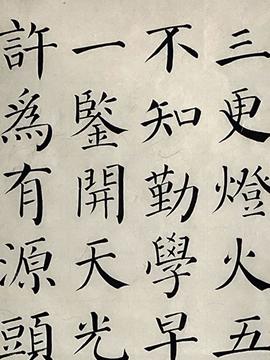 三更燈火五
不知勤學早
一鑒開天光
許為有源頭